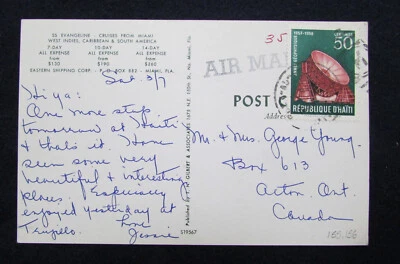 SS EVANGELINE CRUISES FROM MIAMI
WEST INDIES, CARIBBEAN & SOUTH AMERICA
7-DAY 10-DAY 14-DAY
ALL EXPENSE ALL EXPENSE ALL EXPENSE
from from from
$130 $190 $260
EASTERN SHIPPING CORP. - P.O. BOX 882 - MIAMI, FLA.
Sat. 3/7
Hi ya:
One more stop
tomorrow at Haiti
& that's it. Have
seen some very
beautiful & interesting
places. Especially
enjoyed yesterday at
Trujillo. Love
Jessie
519567
35
AIR MAIL
POST
Address
1957-1958
50
REPUBLIQUE D'HAITI
Mr & Mrs. George Young
Box 613
Acton Ont.
Canada